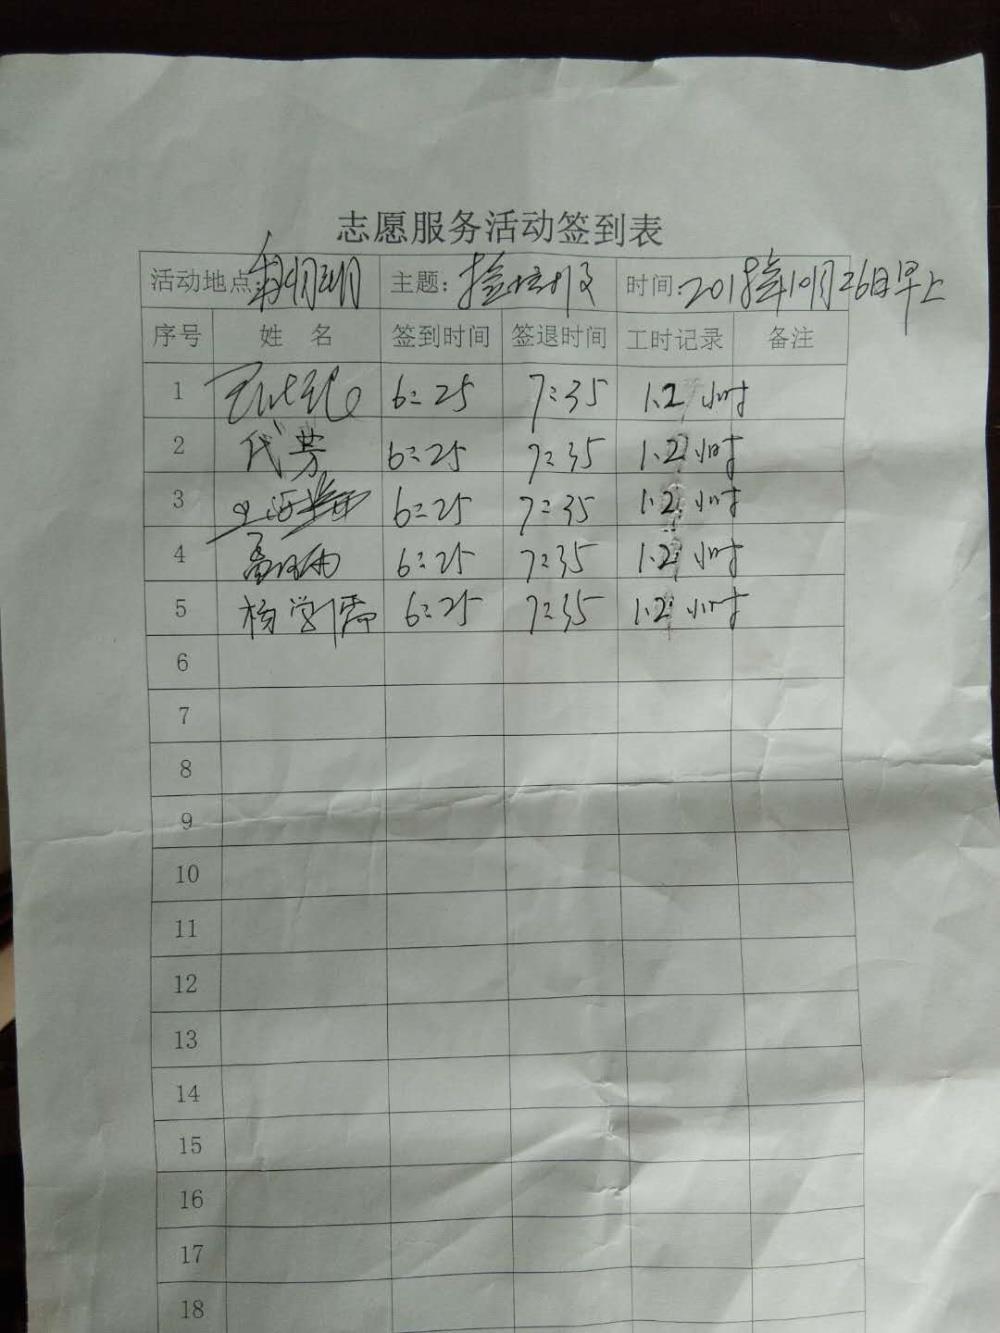 志愿服务活动签到表
活动地点: 主题: 捡垃圾 时间: 2018年10月26日早上
序号 姓 名 签到时间 签退时间 工时记录 备注
1 6:25 7:35 1.2小时
2 代芳 6:25 7:35 1.2小时
3 6:25 7:35 1.2小时
4 6:25 7:35 1.2小时
5 杨学儒 6:25 7:35 1.2小时
6
7
8
9
10
11
12
13
14
15
16
17
18